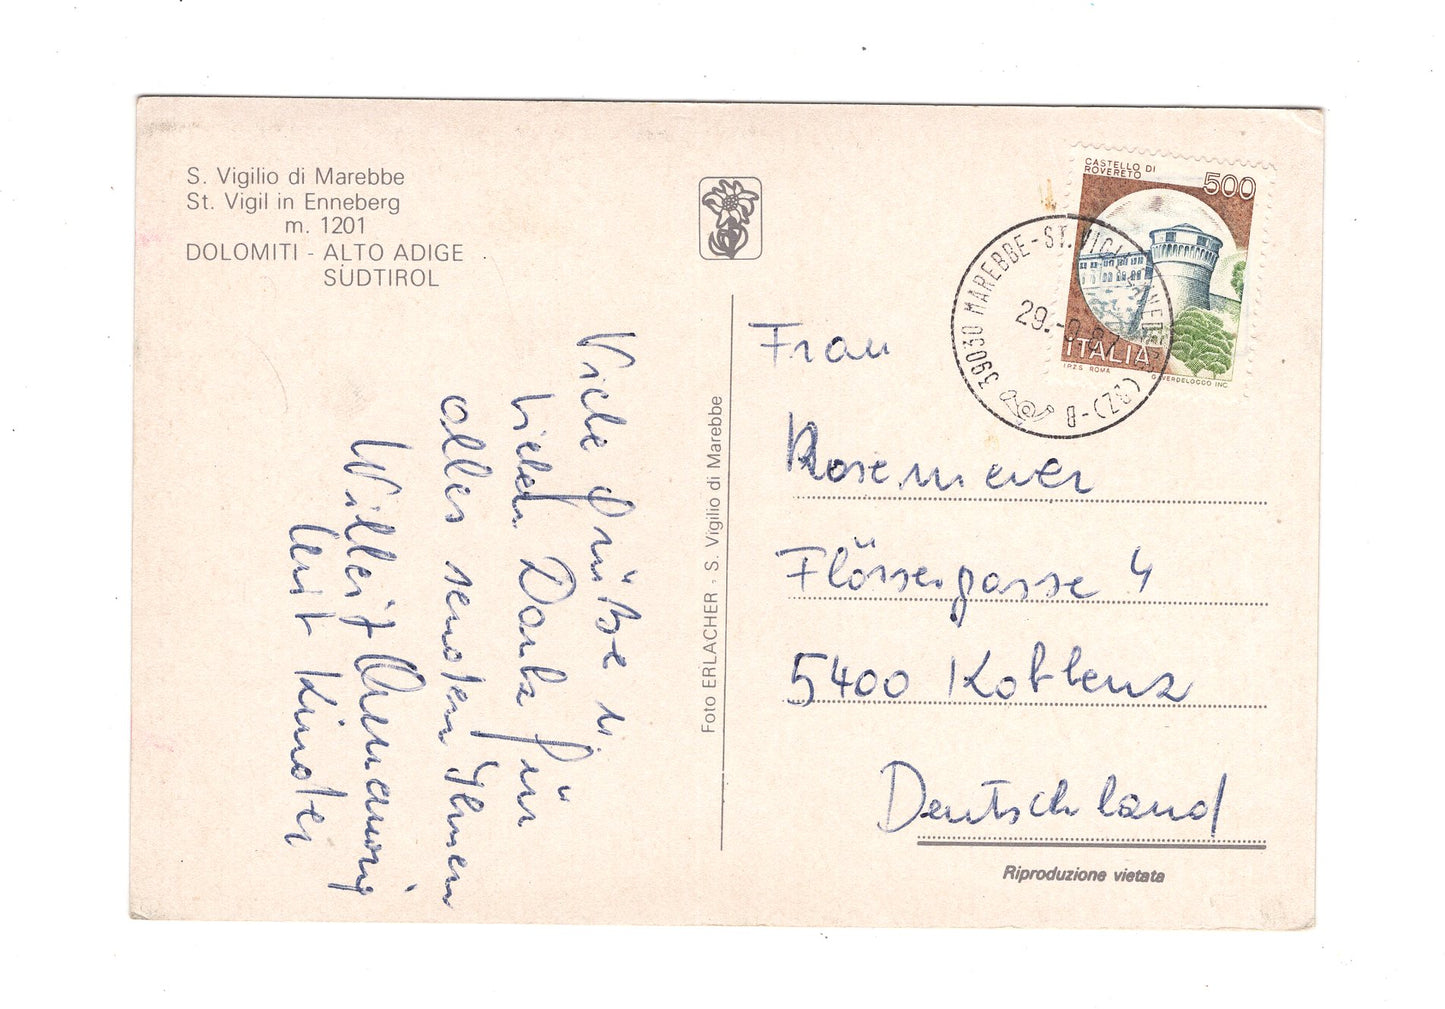 S. Vigilio di Marebbe
St. Vigil in Enneberg
m. 1201
DOLOMITI - ALTO ADIGE
SÜDTIROL
Viele Grüße u.
vielen Dank für
alles senden Ihnen
mit Kinder
Foto ERLACHER · S. Vigilio di Marebbe
CASTELLO DI
ROVERETO
500
ITALIA
I.P.Z.S. ROMA
G. VERDELOCCO INC.
39030 MAREBBE - ST. VIGIL (BZ) - B
Frau
Rosemeyer
Flössergasse 4
5400 Koblenz
Deutschland
Riproduzione vietata